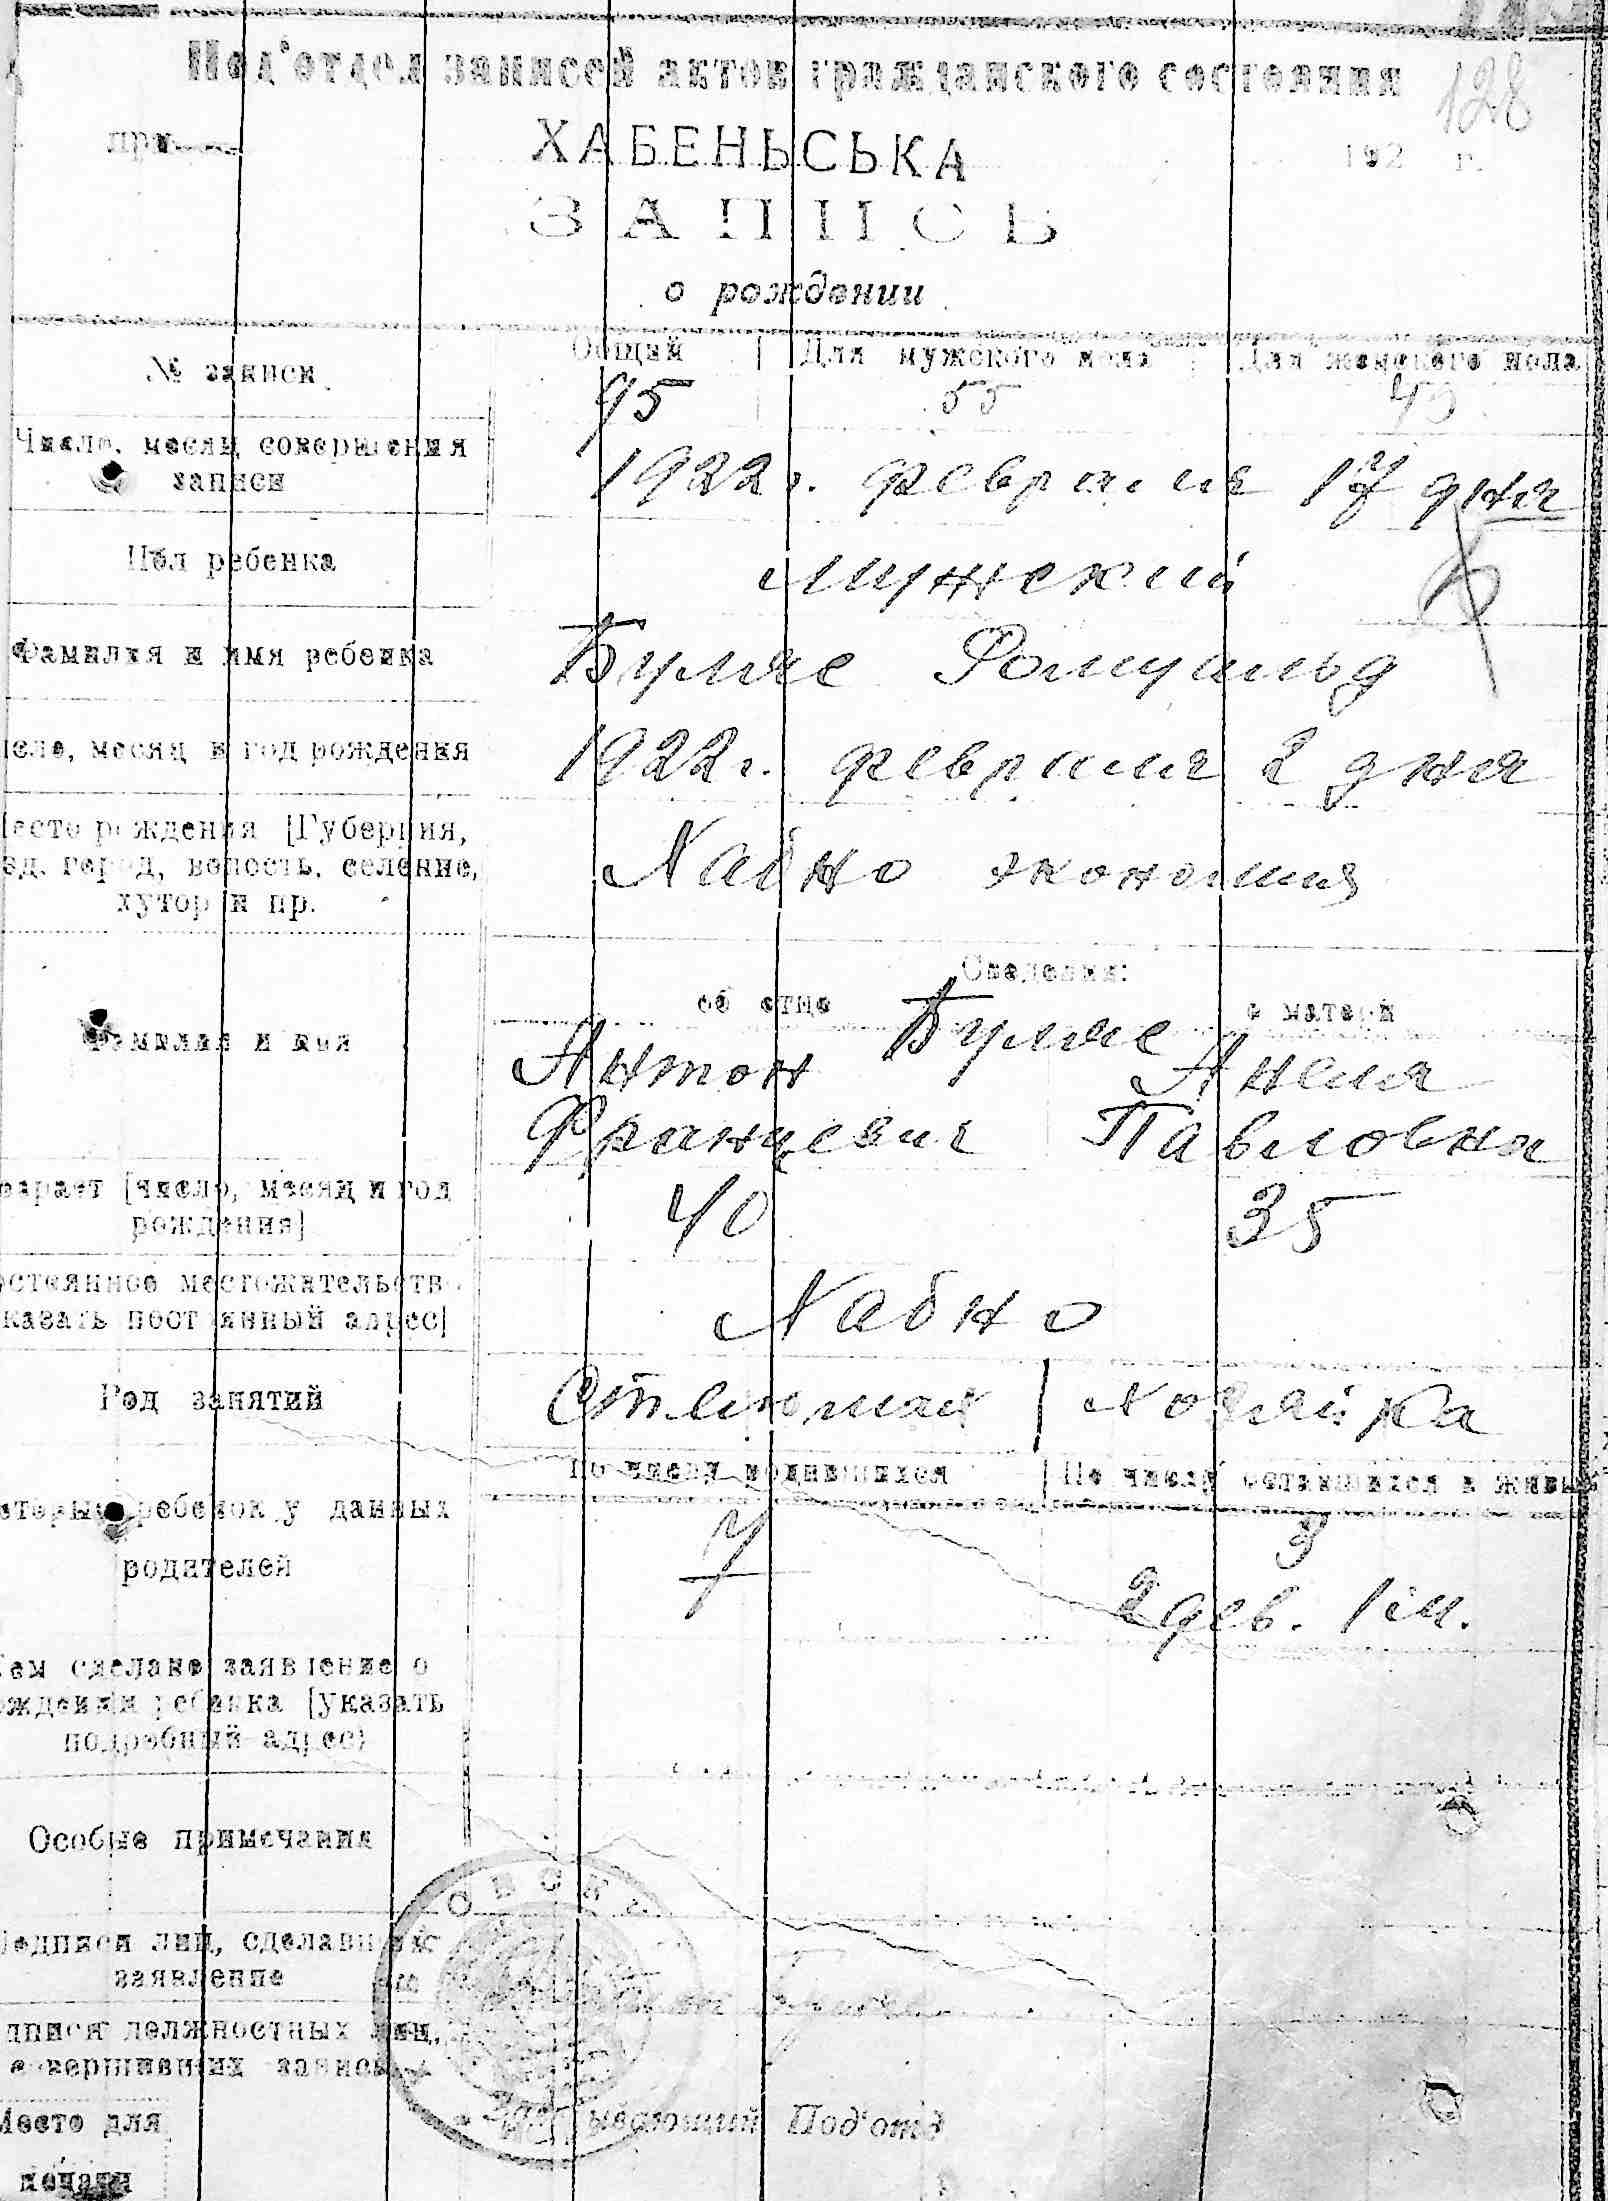 128
Под'отдел записей актов гражданского состояния
при ХАБЕНЬСЬКА 192 г.
ЗАПИСЬ
о рождении
№ записи
Общий Для мужского пола Для женского пола
95 55
Число, месяц совершения записи
1922 г. февраля 17 дня
Пол ребенка
мужский
Фамилия и имя ребенка
Буляс Ромуальд
месяц и год рождения
1922 г. февраля 2 дня
рождения [Губерния,
город, волость, селение,
хутор и пр.
Хабно экономия
Сведения:
об отце о матери
Фамилия и имя
Буляс
Антон Анеля
Францевич Павловна
[число, месяц и год
рождения]
40 35
местожительство
постоянный адрес]
Хабно
Род занятий
Стельмах Хозяйка
По числу родившихся По числу оставшихся в живых
ребенок у данных
родителей
7 3
2 дев. 1 м.
сделано заявление о
ребенка [указать
подробный адрес)
Особые примечания
лиц, сделавших
заявление
должностных лиц,
совершивших запись
Заведующий Под'отд
Место для
печати